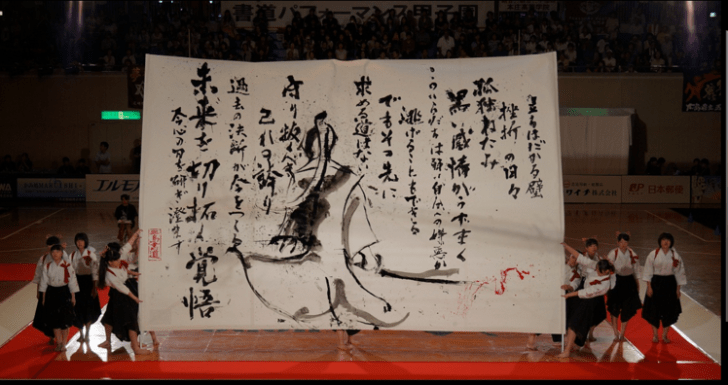 書道パフォーマンス甲子園
立ちはだかる壁
挫折の日々
孤独 わたよみ
黒い感情がうたまく
このいらだちは
逃げることもできる
でもその先に
求める道はない
守り抜くべき
己れの誇り
過去の決断が今をつくる
未来を切り拓く覚悟
今心の刃を研ぎ澄ます
エルモ
日本郵便